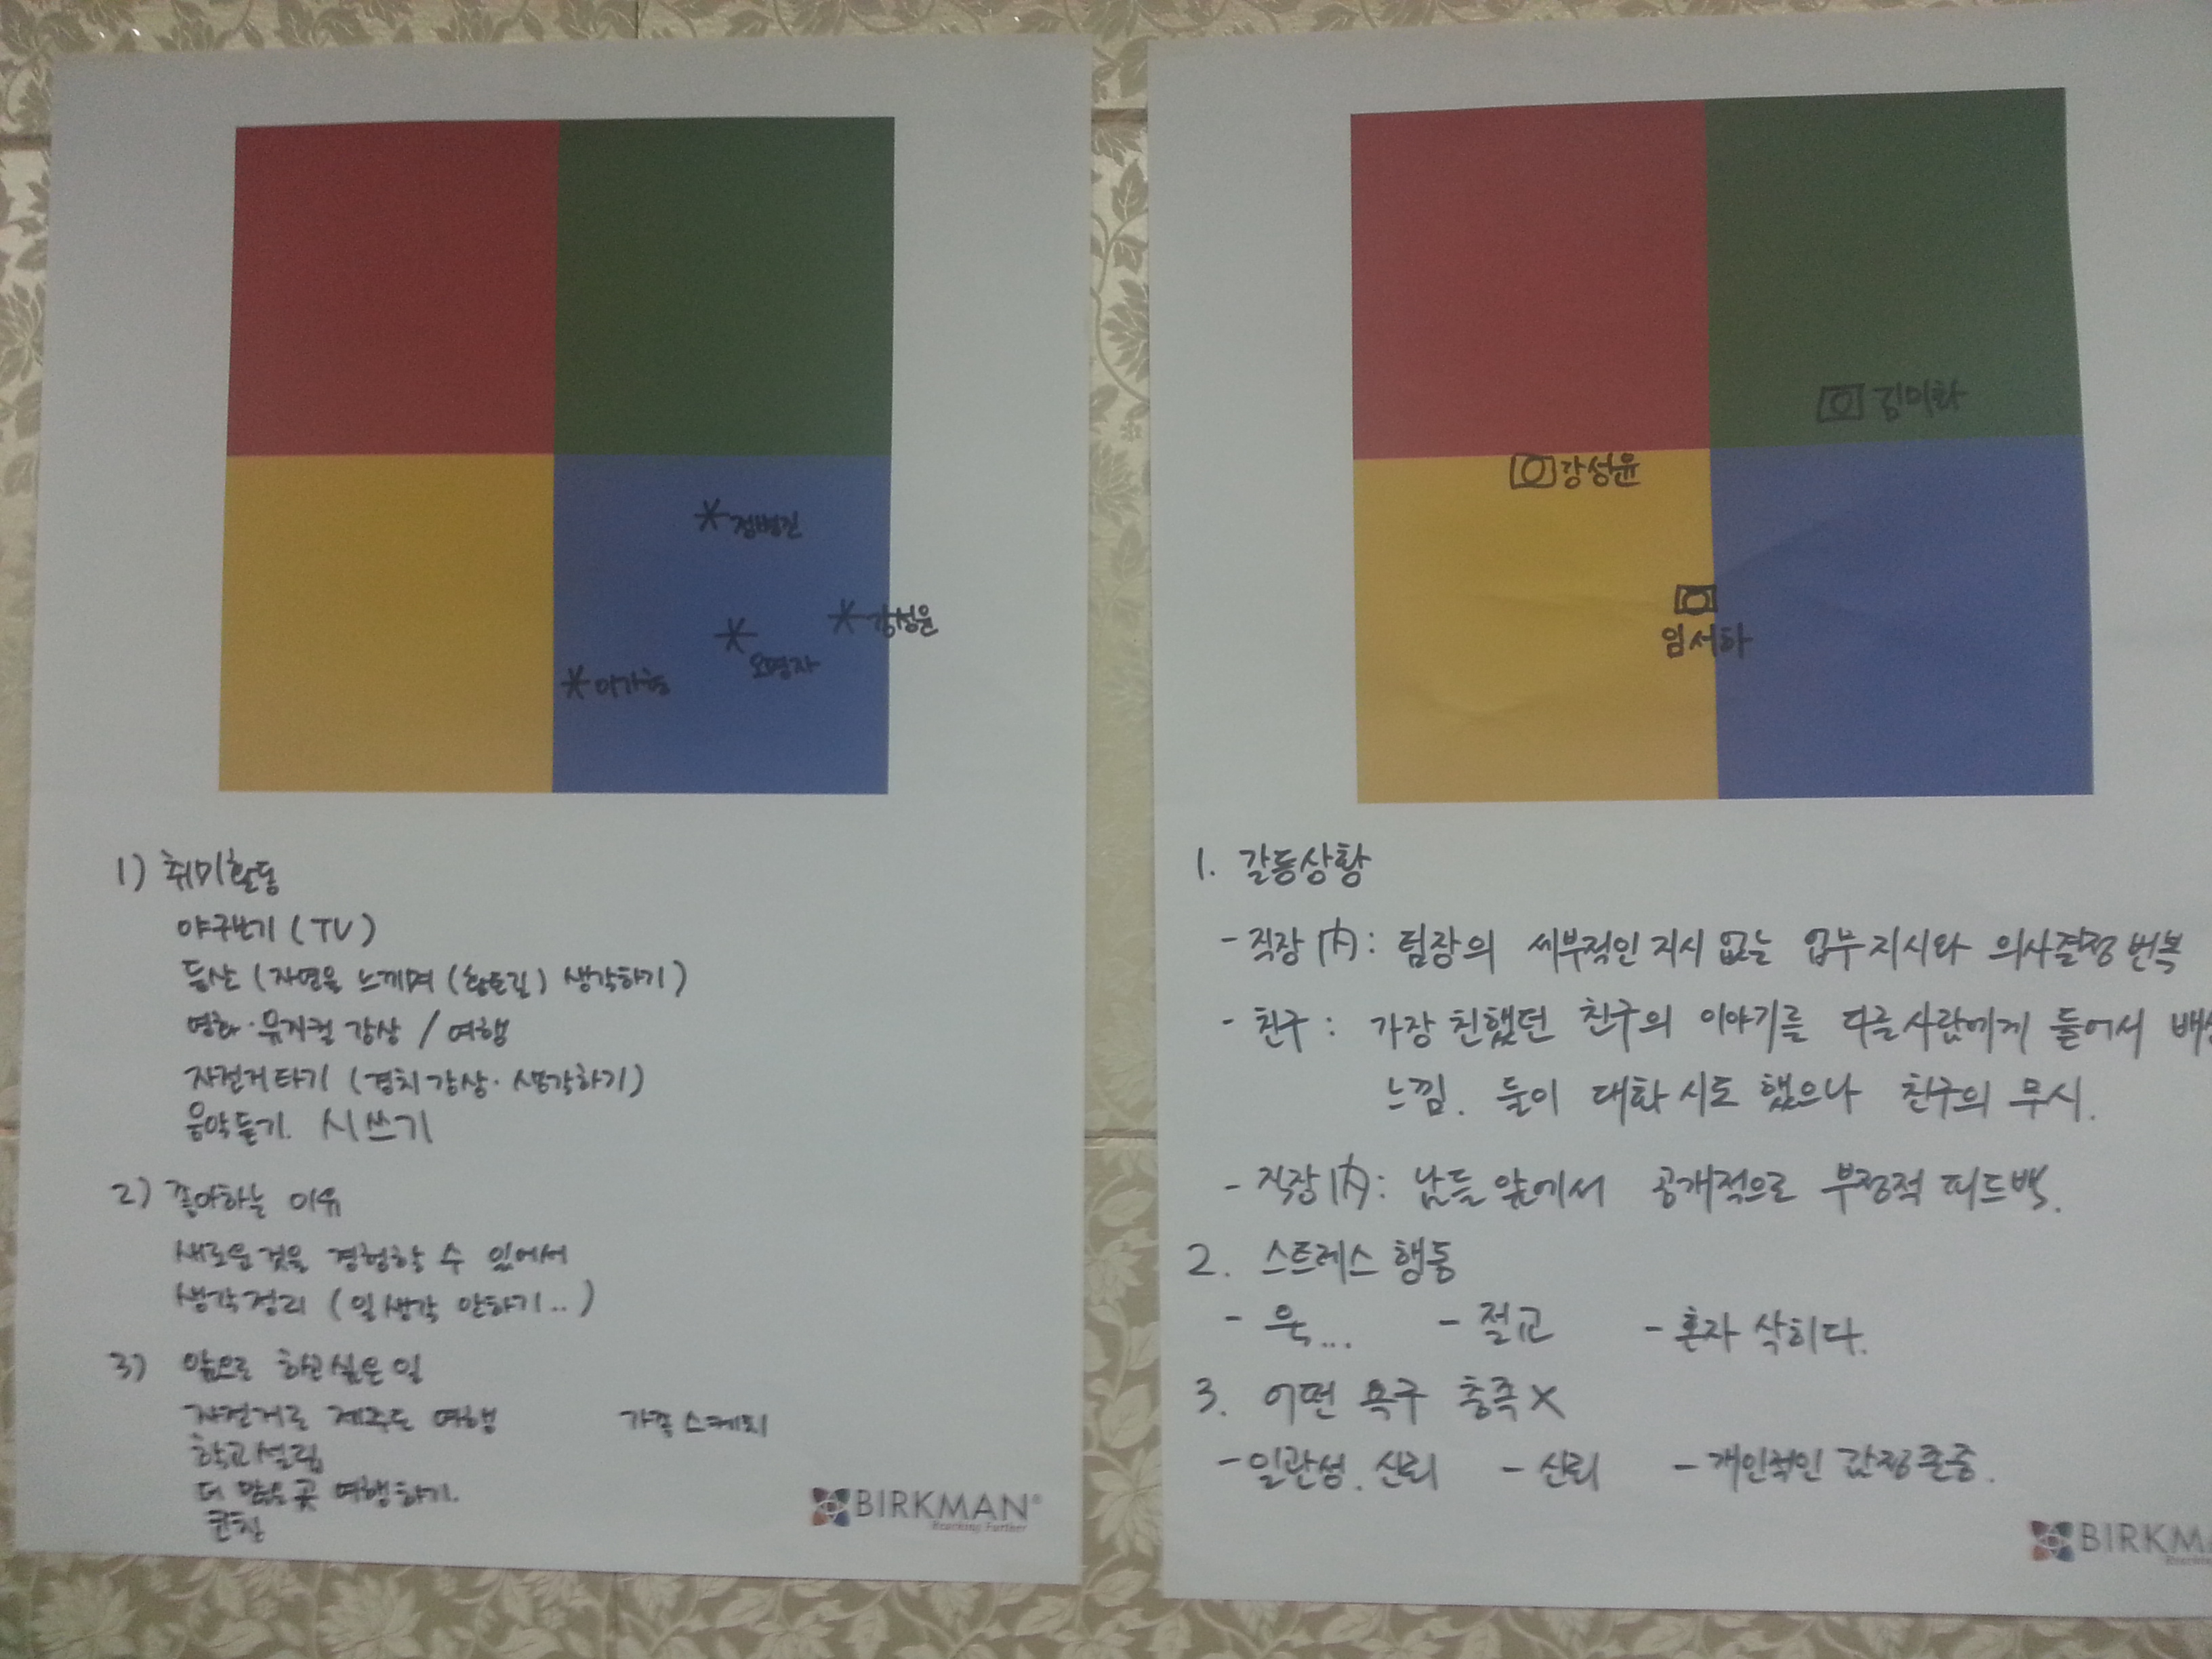 정병진
강성윤
오명자
이가형
1) 취미활동
야구보기 (TV)
등산 (자연을 느끼며 (황톳길) 생각하기)
영화·뮤지컬 감상 / 여행
자전거타기 (경치감상·생각하기)
음악듣기. 시쓰기
2) 좋아하는 이유
새로운것을 경험할 수 있어서
생각정리 (일생각 안하기..)
3) 앞으로 하고싶은 일
자전거로 제주도 여행 가족스케치
학교설립
더 많은 곳 여행하기.
코칭
BIRKMAN®
Reaching Further
김미화
강성윤
임서하
1. 갈등상황
- 직장 內: 팀장의 세부적인 지시 없는 업무지시와 의사결정 번복
- 친구: 가장 친했던 친구의 이야기를 다른사람에게 들어서
느낌. 둘이 대화 시도 했으나 친구의 무시.
- 직장 內: 남들 앞에서 공개적으로 부정적 피드백.
2. 스트레스 행동
- 욱... - 절교 - 혼자 삭히다.
3. 어떤 욕구 충족 X
- 일관성. 신뢰 - 신뢰 - 개인적인 감정존중.
BIRKM